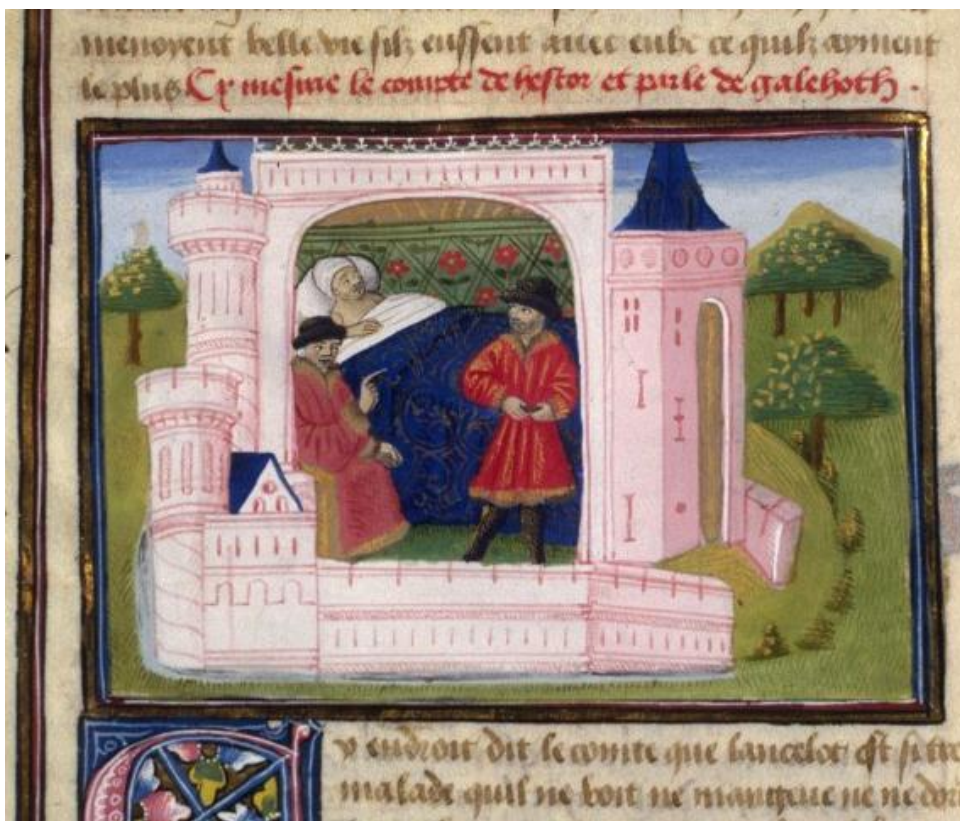 menoyent belle vie silz eussent avec eulx ce quilz ayment
le plus Cy mesine le compte de hestor et parle de galehoth .
y endroit dit le compte que lancelot est si tre
malade quil ne boit ne mangeue ne ne dort